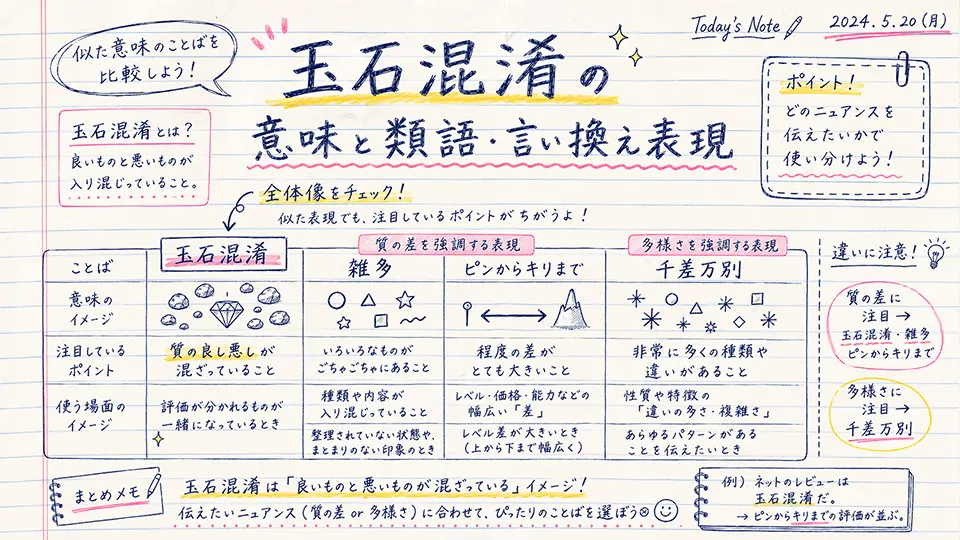 Today's Note
2024.5.20(月)
似た意味のことばを
比較しよう!
玉石混淆の
意味と類語・言い換え表現
ポイント!
どのニュアンスを
伝えたいかで
使い分けよう!
玉石混淆とは?
良いものと悪いものが
入り混じっていること。
全体像をチェック!
似た表現でも、注目しているポイントがちがうよ!
質の差を強調する表現
多様さを強調する表現
ことば
玉石混淆
雑多
ピンからキリまで
千差万別
意味の
イメージ
注目している
ポイント
質の良し悪しが
混ざっていること
いろいろなものが
ごちゃごちゃにあること
程度の差が
とても大きいこと
非常に多くの種類や
違いがあること
使う場面の
イメージ
評価が分かれるものが
一緒になっているとき
種類や内容が
入り混じっていること
整理されていない状態や、
まとまりのない印象のとき
レベル・価格・能力などの
幅広い「差」
レベル差が大きいとき
(上から下まで幅広く)
性質や特徴の
「違いの多さ・複雑さ」
あらゆるパターンがある
ことを伝えたいとき
違いに注意!
質の差に
注目→
玉石混淆・雑多
ピンからキリまで
多様さに
注目→
千差万別
まとめメモ
玉石混淆は「良いものと悪いものが混ざっている」イメージ!
伝えたいニュアンス(質の差 or 多様さ)に合わせて、ぴったりのことばを選ぼう◎
例)ネットのレビューは
玉石混淆だ。
→ピンからキリまでの評価が並ぶ。